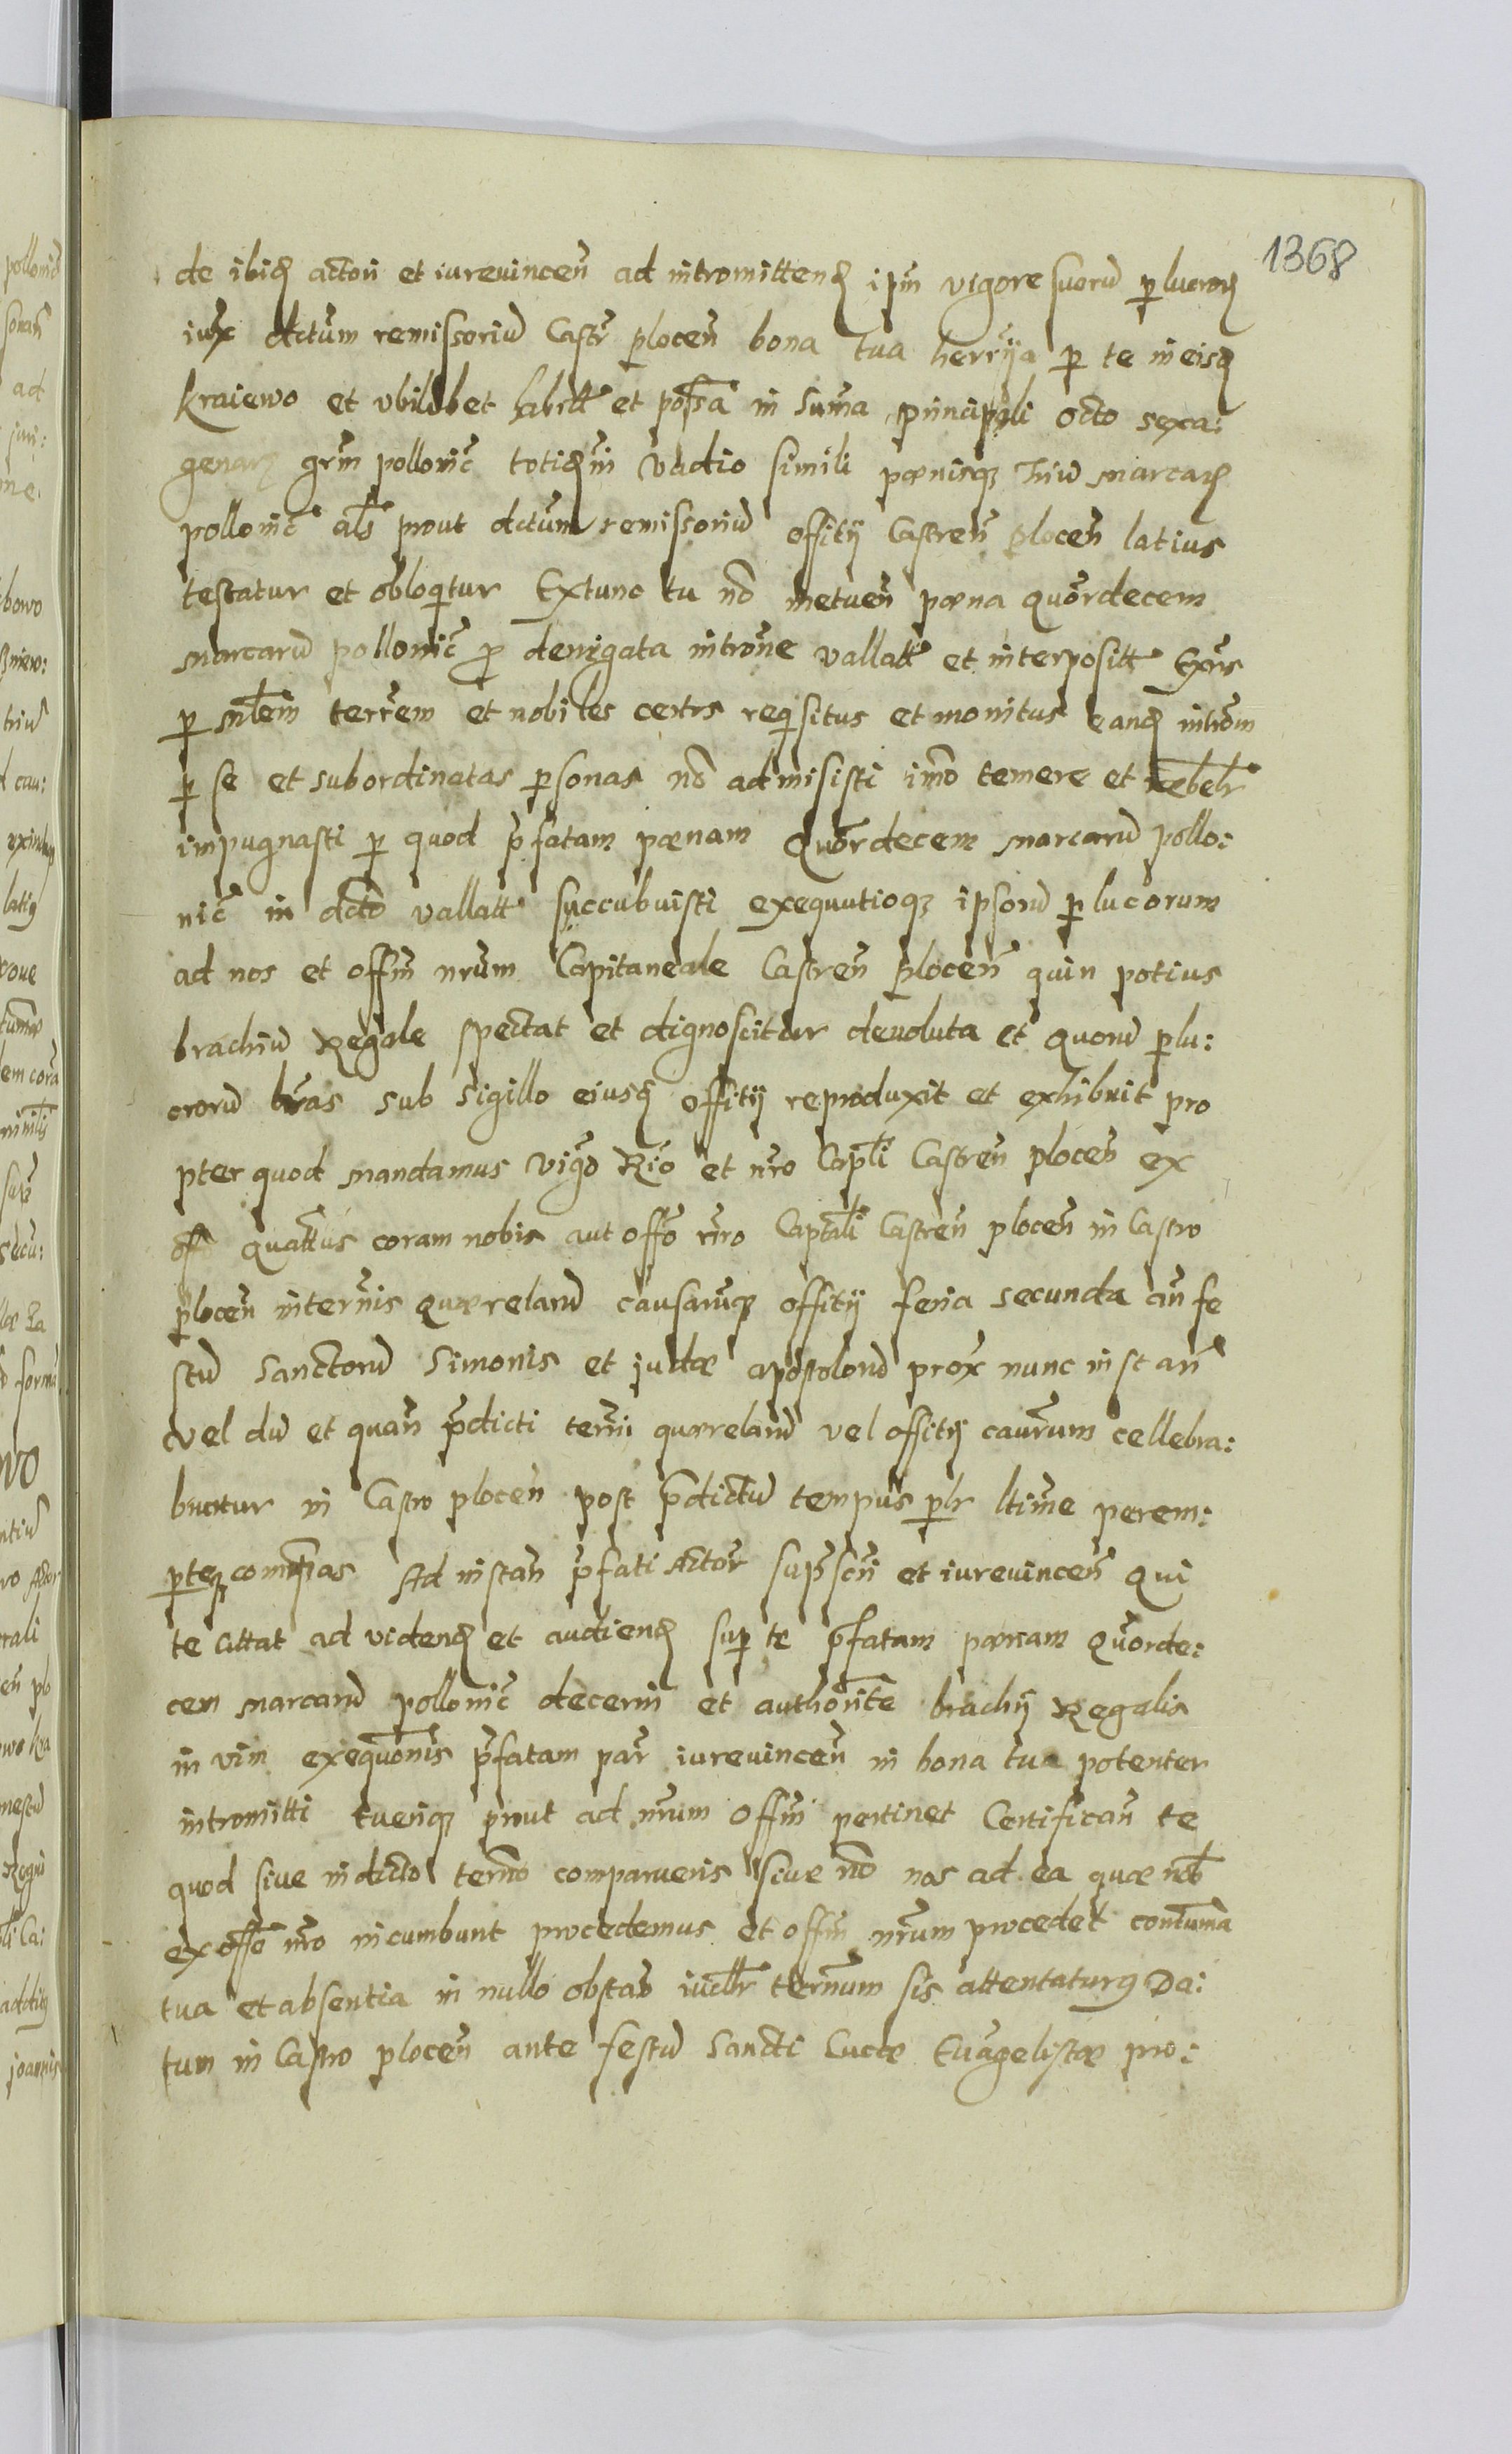 1368
de ibid actori et iurevincen ad intromitten ipm vigore suoru perlucror
iux dctum remissoriu Castr plocen bona tua herria per te in eisd
Kraiewo et vbilibet habitt et possa in suma principali octo sexa:
genar grm pollonic totidm vadio simili pœnisq triu marcar
pollonic als prout dctum remissoriu offitij Castren plocen latius
testatur et obloqitur Extunc tu no metuen pœna quordecem
marcaru pollonic p denegata introne vallatt et interpositt Exns
per mlem terrem et nobiles certos reqisitus et monitus eand introm
per se et subordinatas psonas no admisisti imo temere et rebelr
impugnasti per quod pfatam pœnam quordecem marcaru pollo:
nic in dcto vallatt succubuisti exequutioq ipsoru perlucrorum
ad nos et offm nrum Capitaneale Castren plocen quin potius
brachiu Regale spectat et dignoscitur devoluta et quoru perlu:
croru lras sub sigillo eiusd offitij reproduxit et exhibuit pro
pter quod mandamus vigo Rio et nro Capli Castren plocen ex
offo quattus coram nobis aut offo nro Captali Castren plocen in Castro
plocen in ternis quœrelaru causaruq offitij feria secunda an fe
stu Sanctoru Simonis et iudæ apostoloru prox nunc instan
vel du et quan pdicti terni quœrelaru vel offitij caurum cellebra:
buntur in Castro plocen post pdictu tempus plr ltime perem:
pteq compas Ad instan pfati Actor supscri et iurevincen qui
te cittat ad viden et audien sup te pfatam pœnam quorde:
cem marcaru pollonic decerni et authorite brachij Regalis
in vim exequonis pfatam par iurevincen in bona tua potenter
intromitti tueriq prout ad nrum offm pertinet Certifican te
quod siue in dicto terno comparueris siue no nos ad ea quæ nob
ex offo nro incumbunt procedemus et offm nrum procedet contuma
tua et absentia in nullo obstan iudlr ternum sis attentaturq Da:
tum in Castro plocen ante festu Sancti Lucæ Euagelistæ pro: